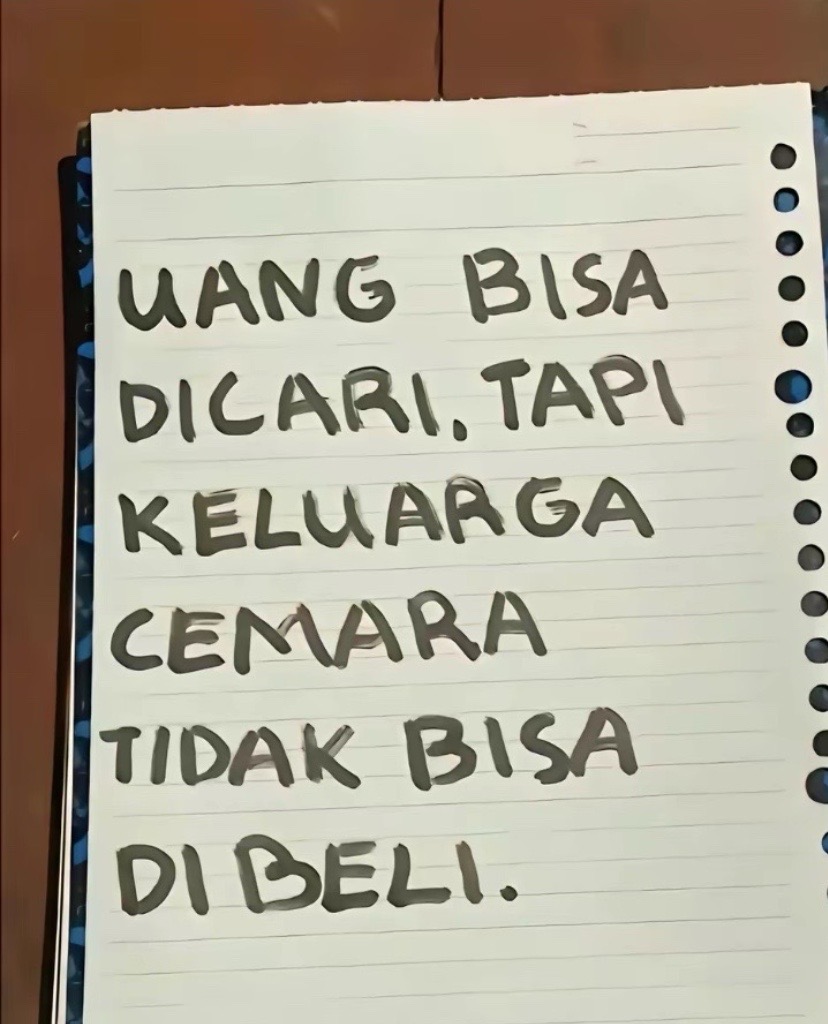 UANG BISA
DICARI. TAPI
KELUARGA
CEMARA
TIDAK BISA
DIBELI.